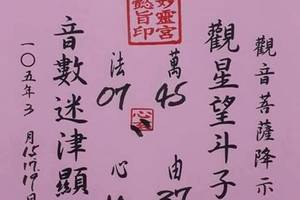 觀音菩薩降示
觀星望斗子
萬 45 由 37
妙靈宮
懿旨印
法 07 心
音數迷津顯
一〇五年3月15.17.19日